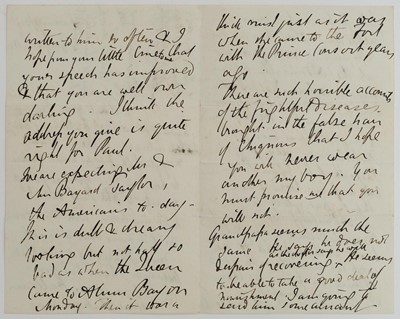 written to him so often & I
hope from your little
your speech has improved
& that you are well own
darling. I think the
address you give is quite
right for Paul.
We are expecting Mr &
Mrs Bayard Taylor,
the Americans to-day
This is dull & dreary
looking but not half so
bad as when the Queen
came to Alum Bay on
Monday. Then it was a
thick mist just as it was
when she came to the Fort
with the Prince Consort years
ago.
There are such horrible accounts
of the frightful diseases
brought in the false hair
of chignons that I hope
you will never wear
another my boy. You
must promise me that you
will not.
Grandpapa seems much the
same he says he does not
as the doctor says he will
despair of recovering. He seems
to be able to take a good deal of
nourishment. I am going to
send him some